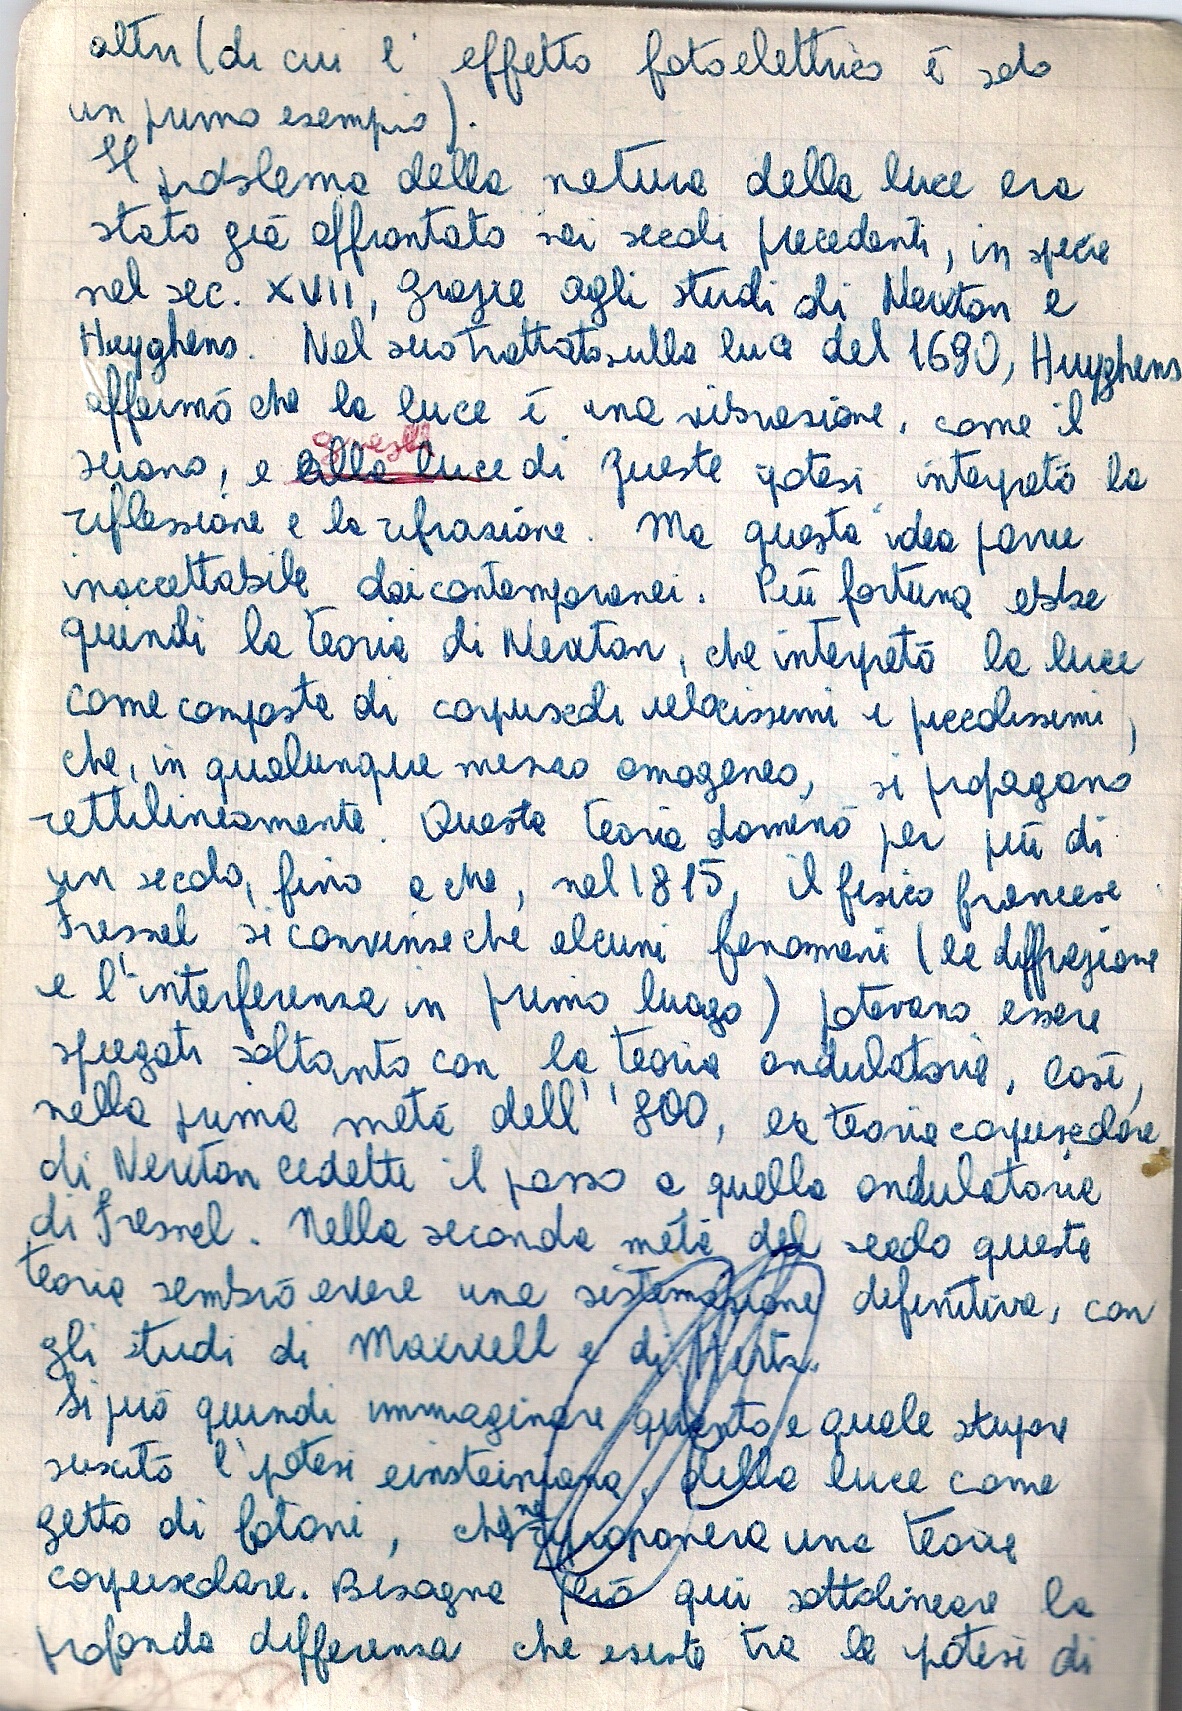 altri (di cui l'effetto fotoelettrico è solo
un primo esempio).
Il problema della natura della luce era
stato già affrontato nei secoli precedenti, in specie
nel sec. XVII, grazie agli studi di Newton e
Huyghens. Nel suo trattato sulla luce del 1690, Huyghens
affermò che la luce è una vibrazione, come il
suono, e alla luce di queste ipotesi interpretò la
riflessione e la rifrazione. Ma questa idea parve
inaccettabile dai contemporanei. Più fortuna ebbe
quindi la teoria di Newton, che interpretò la luce
come composta di corpuscoli velocissimi e piccolissimi,
che, in qualunque mezzo omogeneo, si propagano
rettilineamente. Questa teoria dominò per più di
un secolo, fino a che, nel 1815, il fisico francese
Fresnel si convinse che alcuni fenomeni (la diffrazione
e l'interferenza in primo luogo) potevano essere
spiegati soltanto con la teoria ondulatoria. Così,
nella prima metà dell''800, la teoria corpuscolare
di Newton cedette il passo a quella ondulatoria
di Fresnel. Nella seconda metà del secolo questa
teoria sembrò avere una sistemazione definitiva, con
gli studi di Maxwell e di Hertz.
Si può quindi immaginare quanto e quale stupore
suscitò l'ipotesi einsteiniana, della luce come
getto di fotoni, che riproponeva una teoria
corpuscolare. Bisogna però qui sottolineare la
profonda differenza che esiste tra le ipotesi di